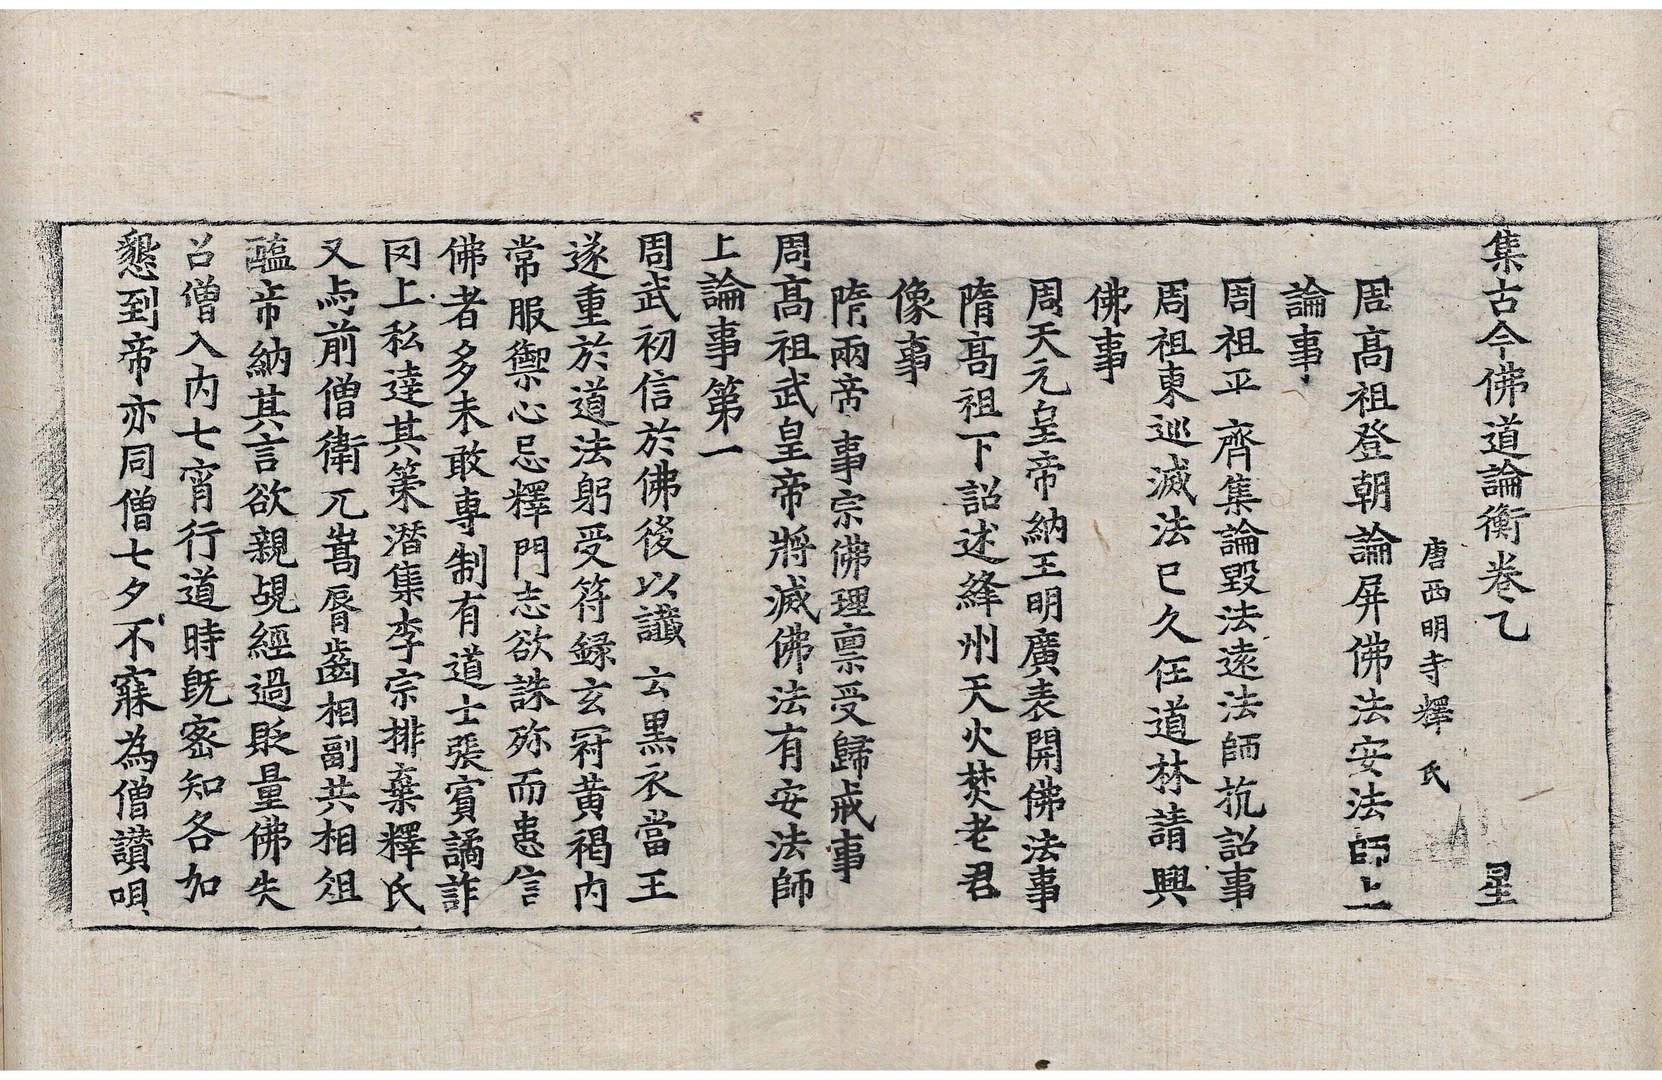 集古今佛道論衡卷乙 星
唐西明寺釋氏
周高祖登朝論屏佛法安法師上
論事
周祖平齊集論毀法遠法師抗詔事
周祖東巡滅法已久任道林請興
佛事
周天元皇帝納王明廣表開佛法事
隋高祖下詔述絳州天火焚老君
像事
隋兩帝事宗佛理稟受歸戒事
周高祖武皇帝將滅佛法有安法師
上論事第一
周武初信於佛後以讖云黑衣當王
遂重於道法躬受符録玄冠黃褐内
常服禦心忌釋門志欲誅殄而患信
佛者多未敢專制有道士張賓譎詐
罔上私達其策潛集李宗排棄釋氏
又与前僧衛元嵩脣齒相副共相俎
醢帝納其言欲親覘經過貶量佛失
召僧入内七宵行道時旣密知各加
懇到帝亦同僧七夕不寐為僧讃唄